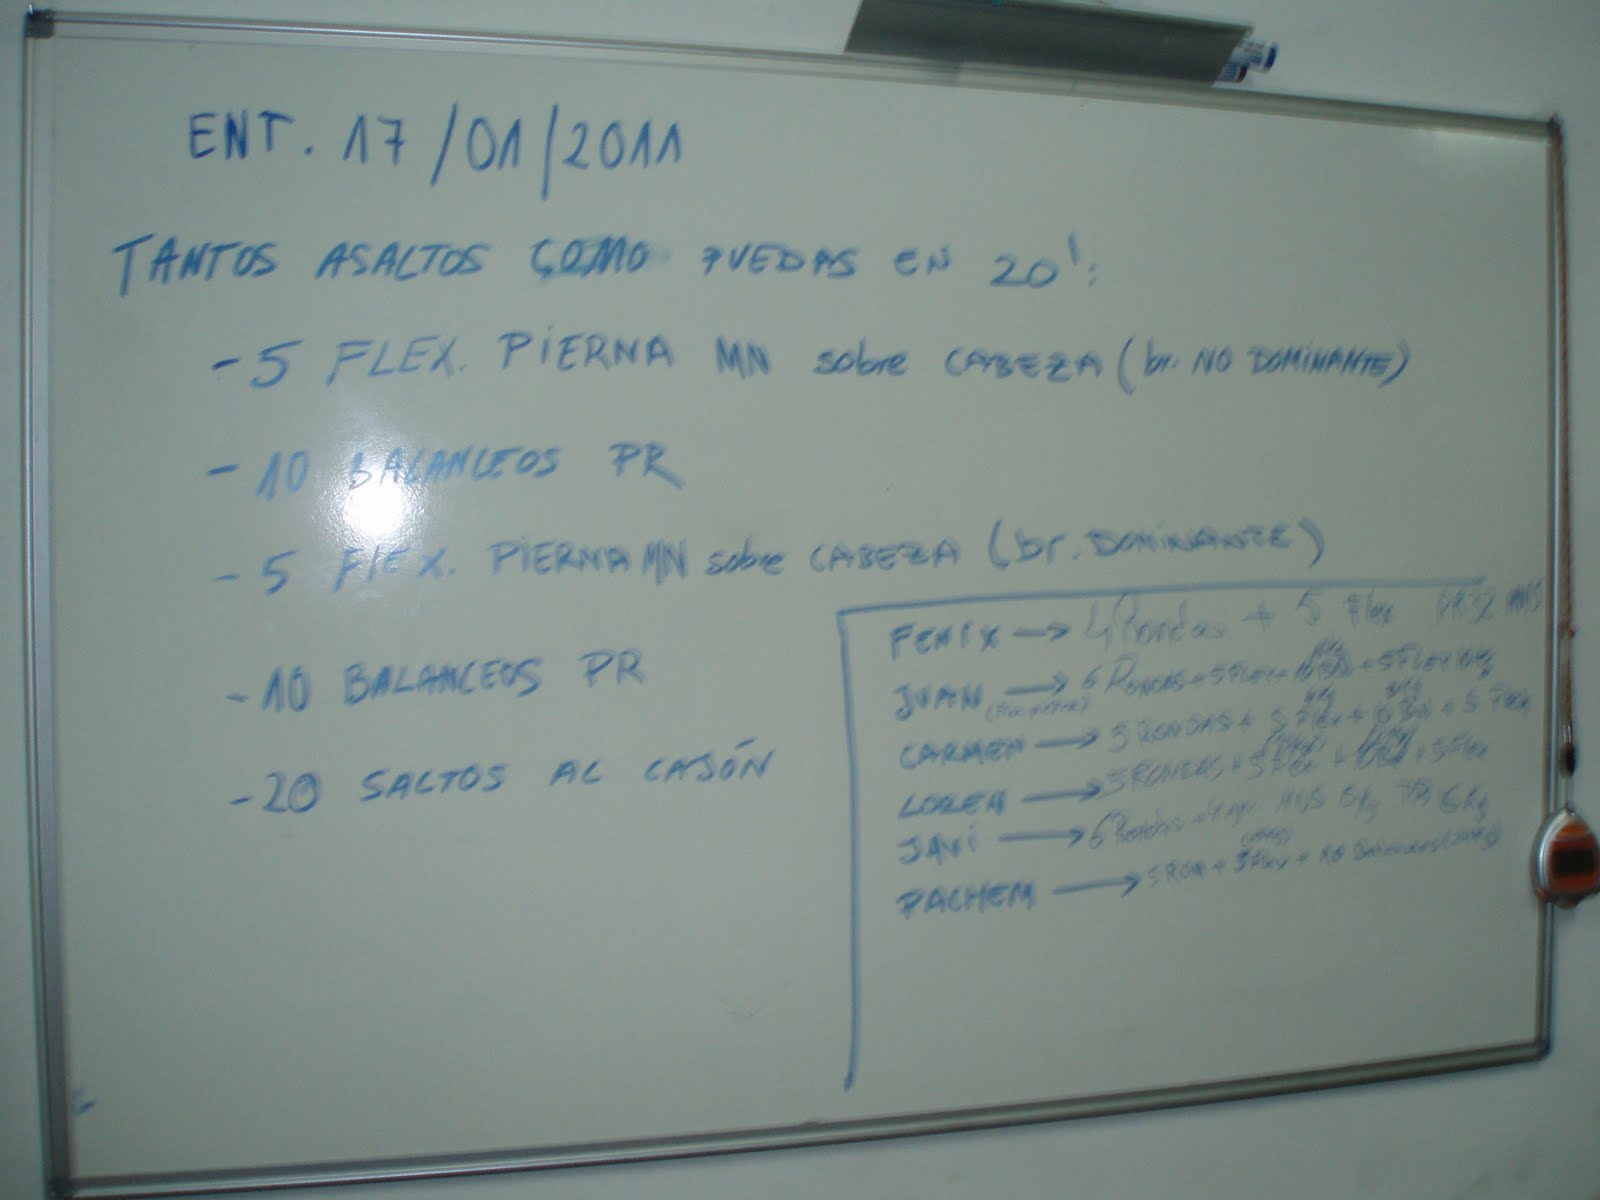 ENT. 17/01/2011
TANTOS ASALTOS COMO PUEDAS EN 20':
- 5 FLEX. PIERNA MN sobre CABEZA (br. NO DOMINANTE)
- 10 BALANCEOS PR
- 5 FlEX. PIERNA MN sobre CABEZA (br. DOMINANTE)
- 10 BALANCEOS PR
- 20 SALTOS AL CAJÓN
FENIX → 4 Rondas + 5 Flex
JUAN → 6 RONDAS + 5 FLEX + + 5 FLEX
CARMEN → 3 RONDAS + 5 Flex + 10 + 5 Flex
LOREN → 3 RONDAS + 5 Flex + + 5 Flex
JAVI → 6 Rondas 6Kg
PACHEM → 5 RON + 5 Flex + 10 Balanceos